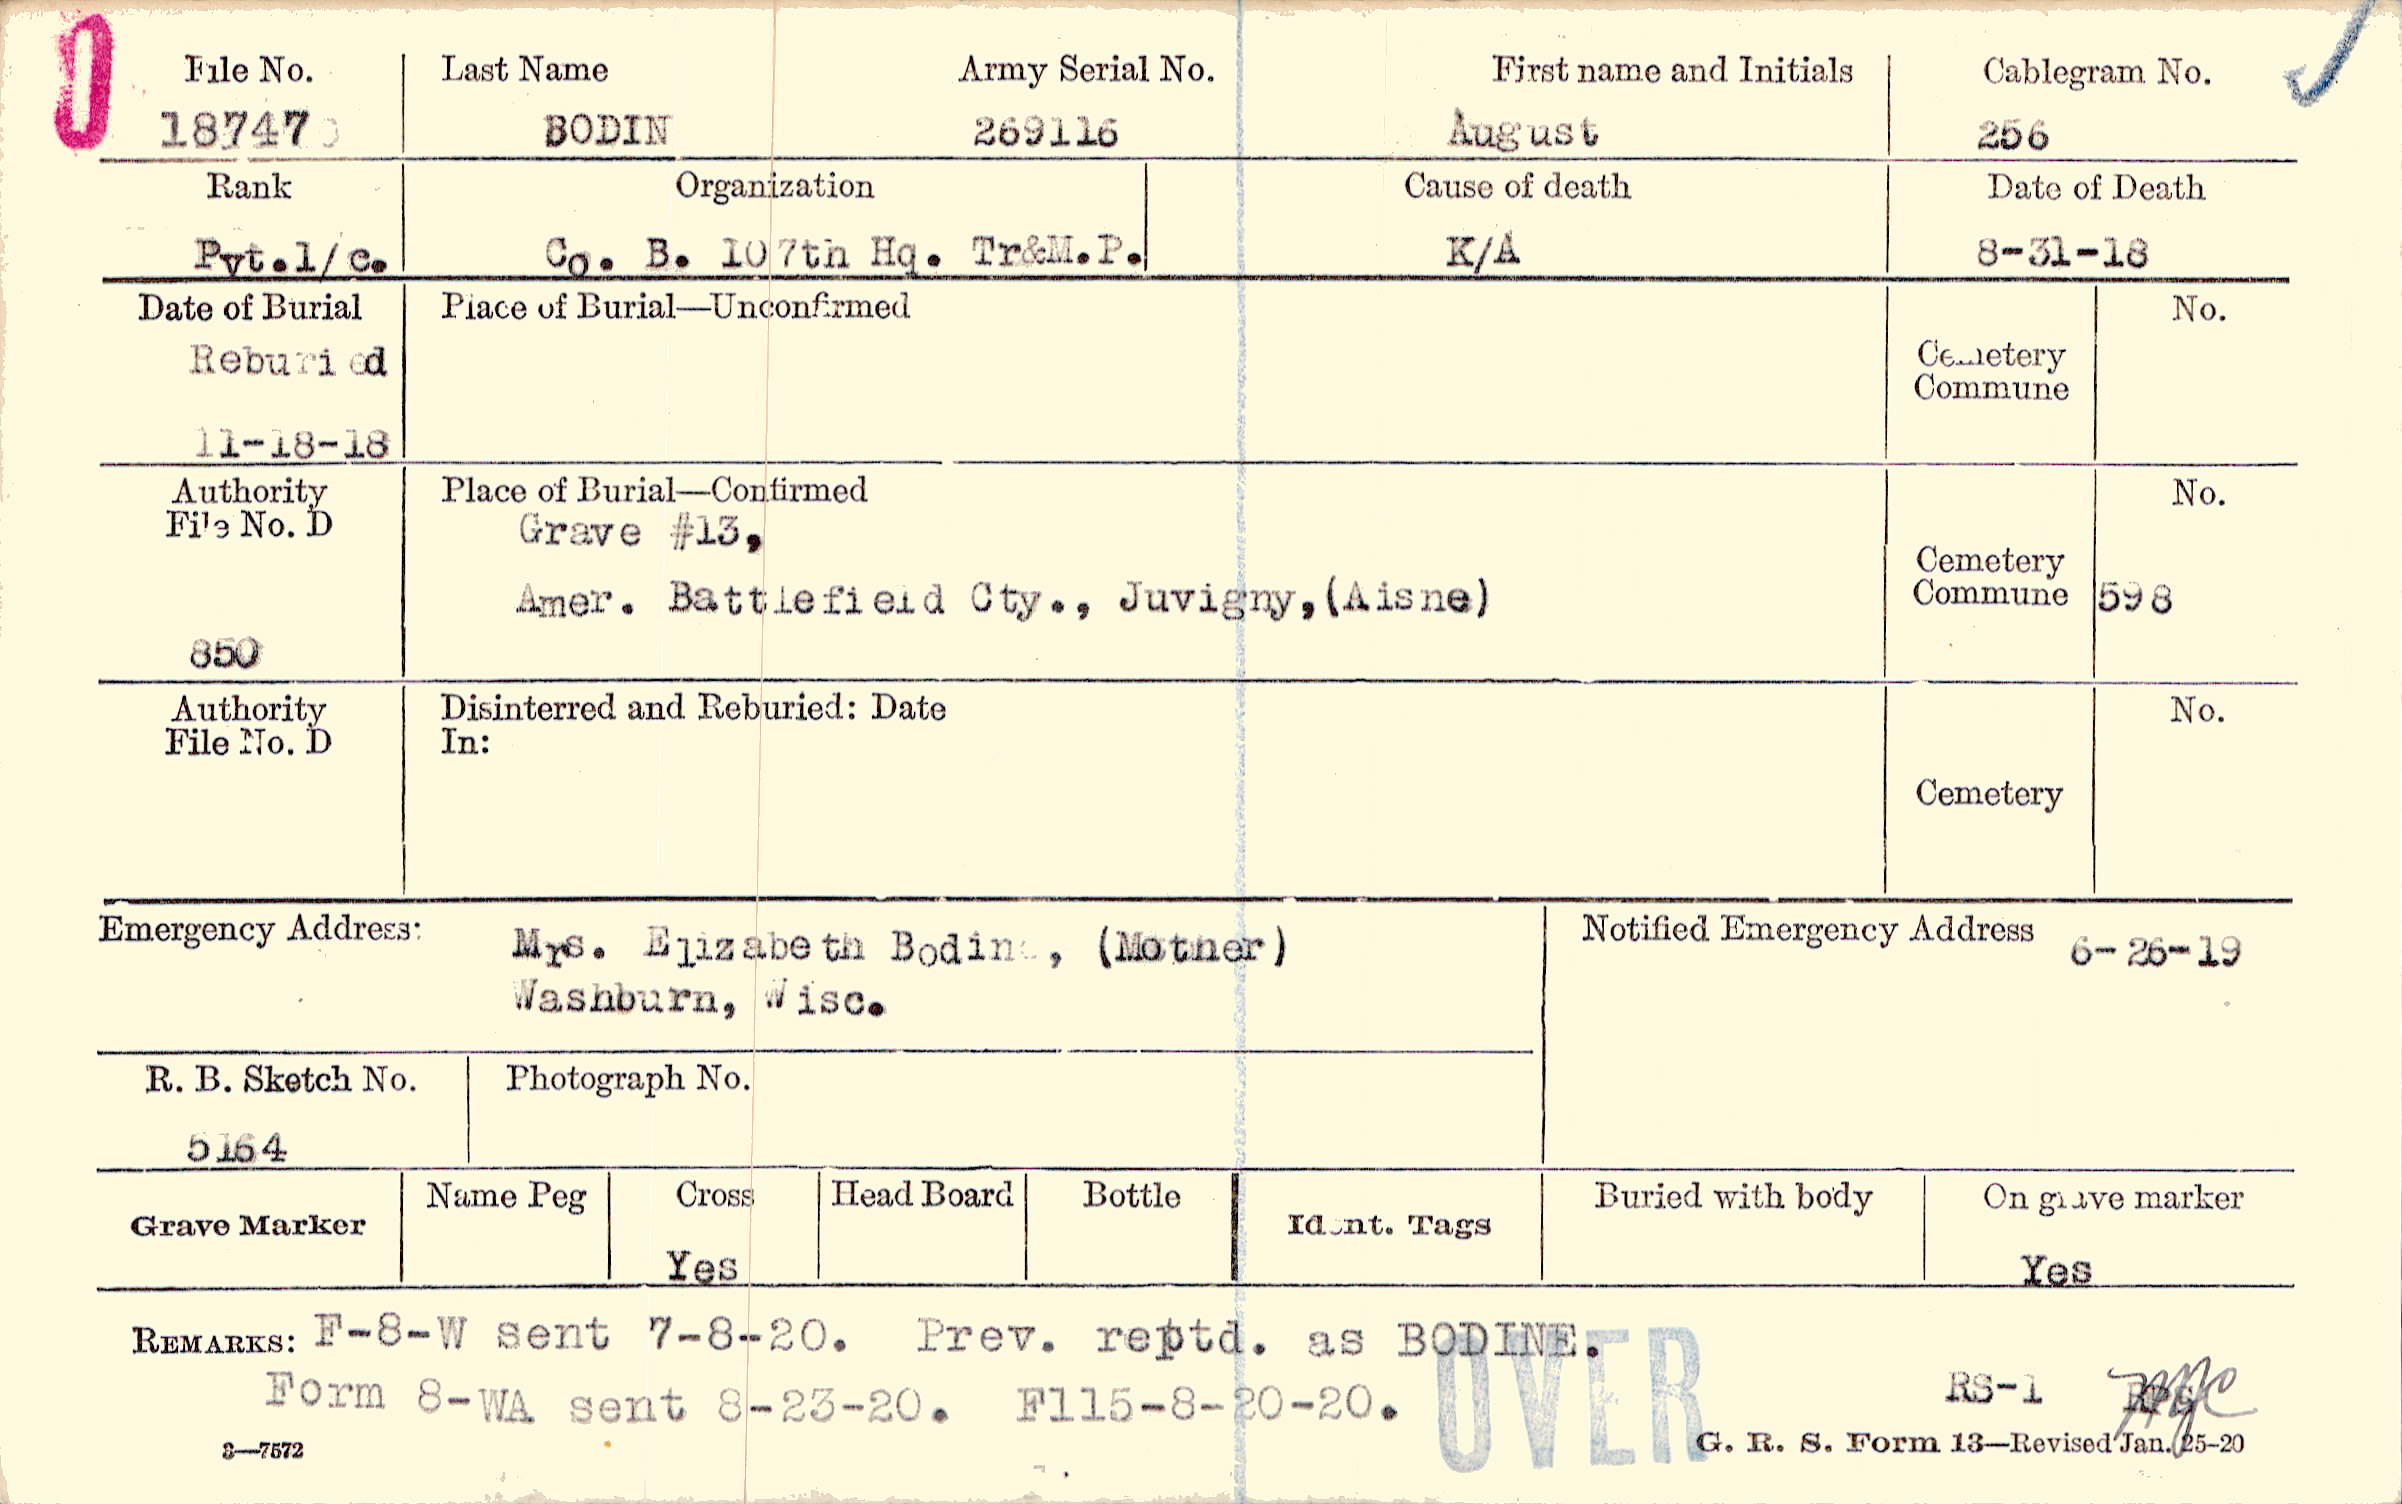 File No. Last Name Army Serial No. First name and Initials Cablegram No.
18747 BODIN 269116 August 256
Rank Organization Cause of death Date of Death
Pvt.1/c. Co. B. 107th Hq. Tr&M.P. K/A 8-31-18
Date of Burial Place of Burial—Unconfirmed No.
Reburied Cemetery
Commune
11-18-18
Authority Place of Burial—Confirmed No.
File No. D Grave #13,
Cemetery
Amer. Battlefield Cty., Juvigny,(Aisne) Commune 598
850
Authority Disinterred and Reburied: Date No.
File No. D In:
Cemetery
Emergency Address: Mrs. Elizabeth Bodin, (Mother) Notified Emergency Address 6-26-19
Washburn, Wisc.
R. B. Sketch No. Photograph No.
5164
Grave Marker Name Peg Cross Head Board Bottle Ident. Tags Buried with body On grave marker
Yes Yes
REMARKS: F-8-W sent 7-8-20. Prev. reptd. as BODINE.
Form 8-WA sent 8-23-20. F115-8-20-20. OVER RS-1
3—7572 G. R. S. Form 13—Revised Jan. 25-20